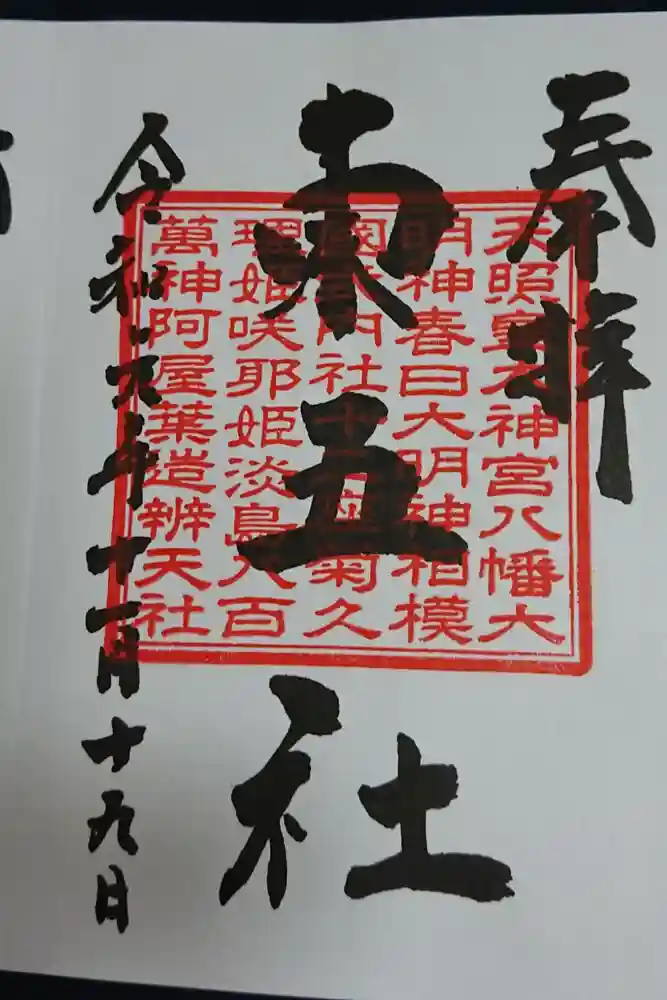 奉拝
東五社
令和六年十一月十九日
天照皇大神宮八幡大
明神春日大明神相模
國式内社十三座菊久
理姫咲耶姫淡島八百
萬神阿屋葉造辨天社